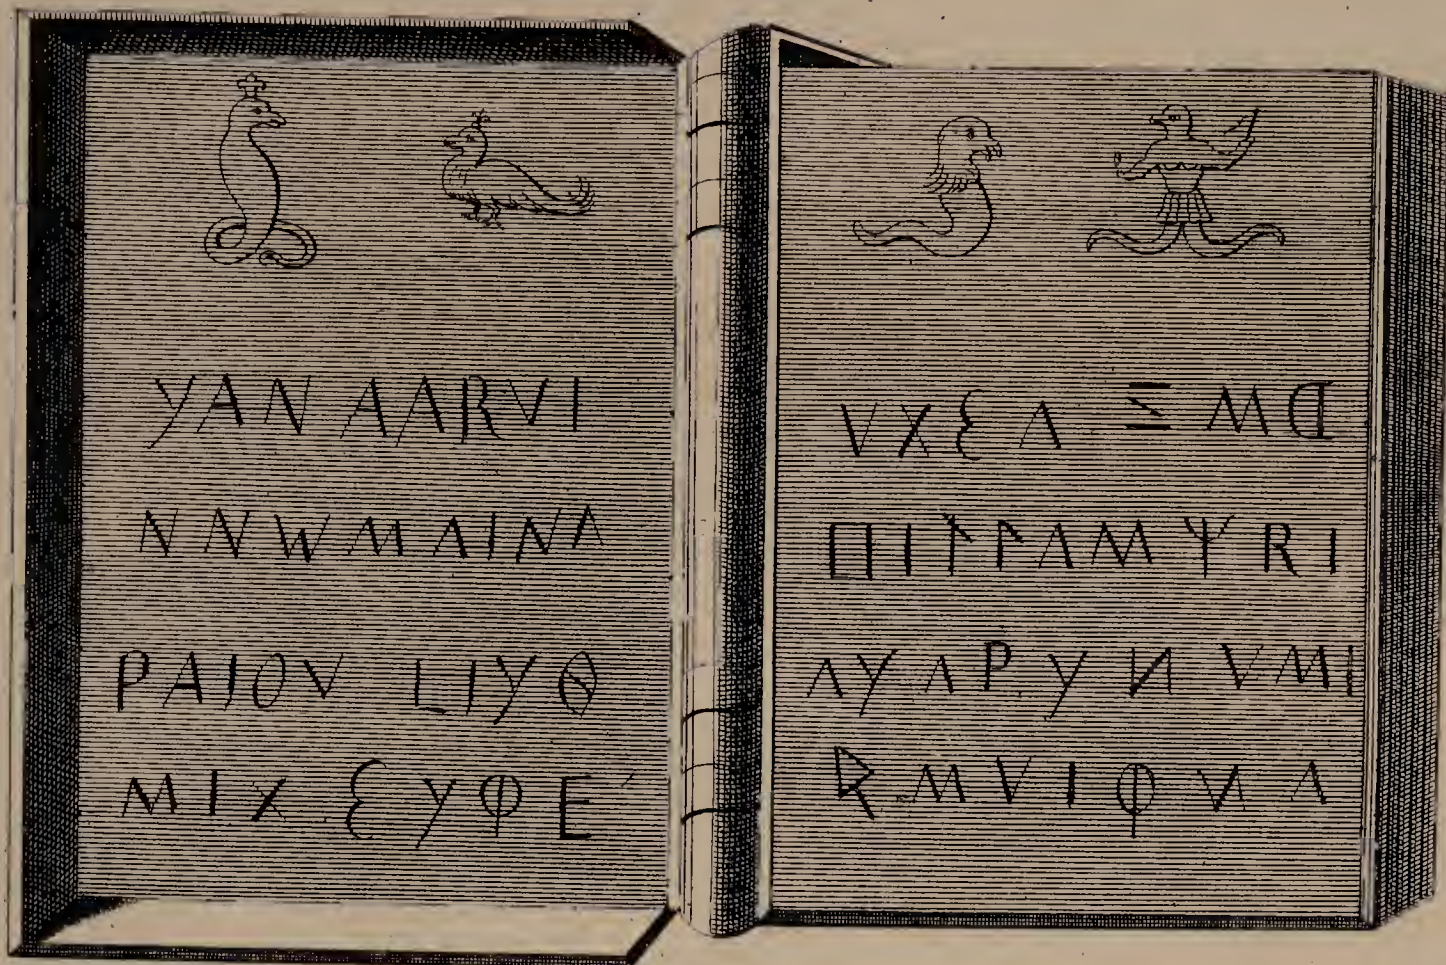 YAN AΛRVI
NNWMΛINΛ
PAIOV LIYΘ
MIX ƐYΦE
VXƐΛ Ξ Mᗡ
ΠI↿ΓΛMΨRI
ΛYΛPY И VMI
RMVIΦИΛ